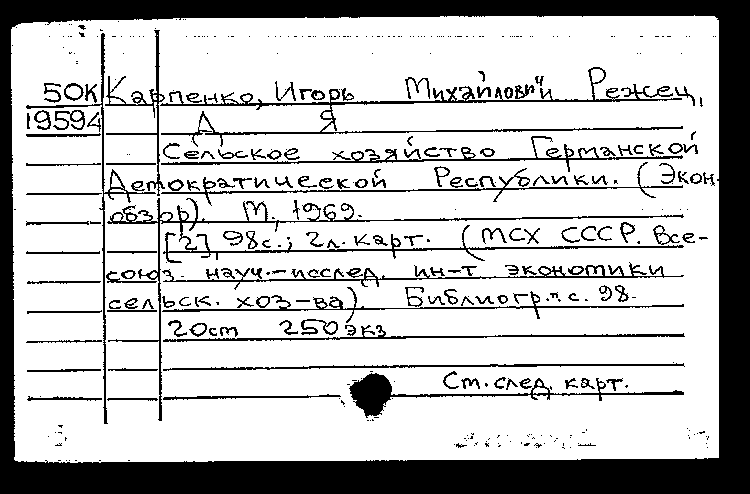 50К Карпенко, Игорь Михайлович Режец,
19594 Д Я
Сельское хозяйство Германской
Демократической Республики. (Экон.
обзор). М., 1969.
[2], 98с.; 2л. карт. (МСХ СССР. Все-
союз. науч.-исслед. ин-т экономики
сельск. хоз-ва). Библиогр.: с. 98.
20см 250экз
См. след. карт.